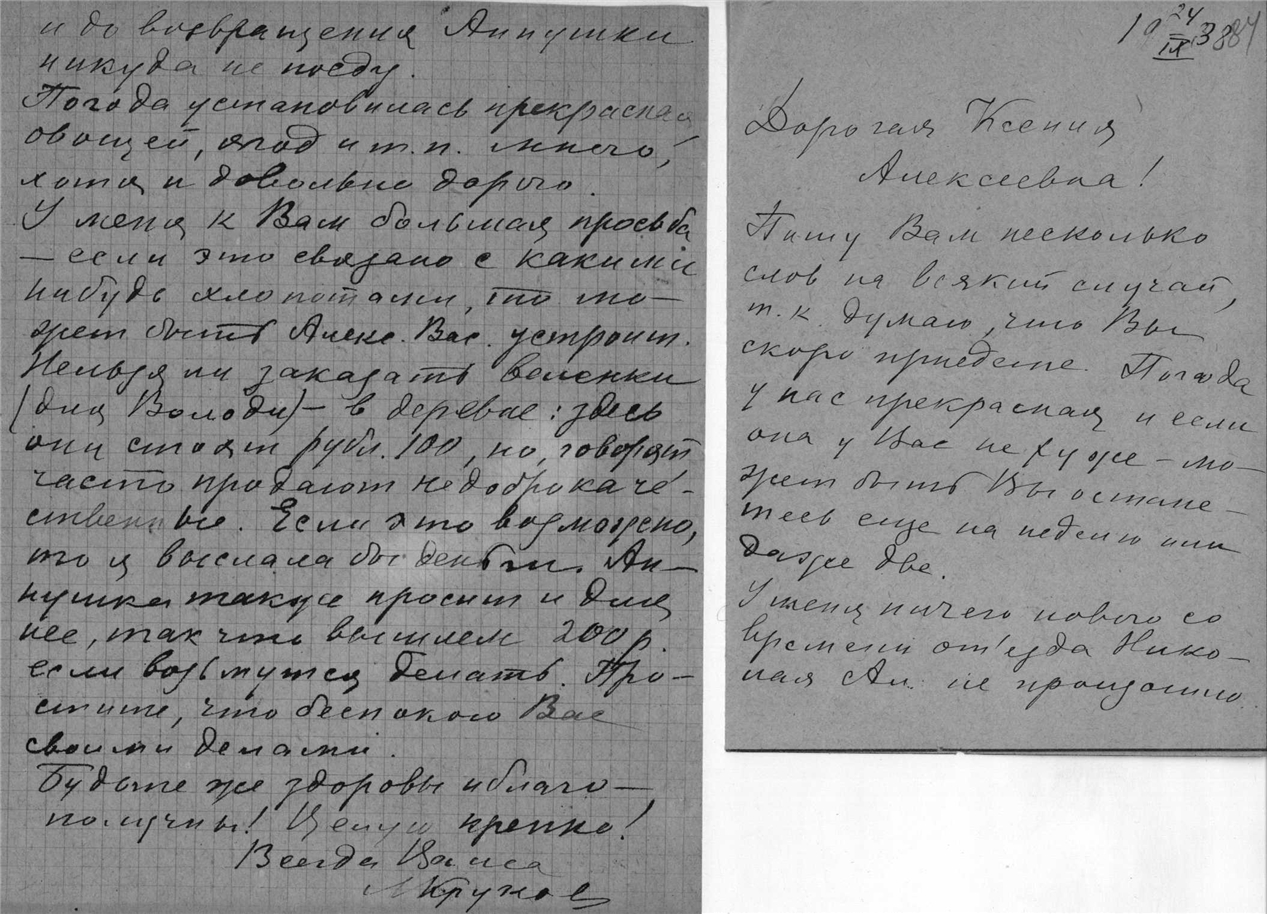 и до возвращения Аннушки
никуда не поеду.
Погода установилась прекрасная
овощей, ягод и т.п. много,
хотя и довольно дорого.
У меня к Вам большая просьба
— если это связано с какими
нибудь хлопотами, то мо—
жет быть Алекс. Вас. устроит.
Нельзя ли заказать валенки
(для Володи) — в деревне: здесь
они стоят рубл. 100, но, говорят
часто продают недоброкаче-
ственные. Если это возможно,
то я выслала бы деньги. Ан—
нушка также просит и для
нее, так что вышлем 200 р.
если возьмутся делать. Про—
стите, что беспокою Вас
своими делами.
Будьте же здоровы и благо—
получны! Целую крепко!
Всегда Ваша
Дорогая Ксения
Алексеевна!
Пишу Вам несколько
слов на всякий случай,
т.к. думаю, что Вы
скоро приедете. Погода
у нас прекрасная и если
она у Вас не хуже — мо—
жет быть Вы остане—
тесь еще на неделю или
даже две.
У меня ничего нового со
времени от'езда Нико—
лая Ал. не произошло.